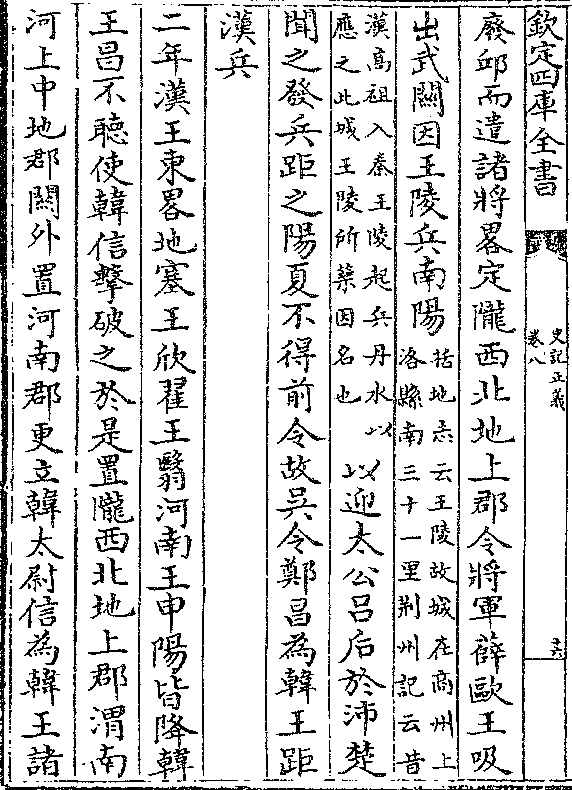 欽定四庫全書
史記正義
卷八
十六
廢邱而遣諸將畧定隴西北地上郡令將軍薛歐王吸
出武關因王陵兵南陽括地志云王陵故城在商州上
洛縣南三十一里荆州記云昔
漢高祖入秦王陵起兵丹水以
應之此城王陵所築因名也
以迎太公吕后於沛楚
聞之發兵距之陽夏不得前令故吴令鄭昌為韓王距
漢兵
二年漢王東畧地塞王欣翟王翳河南王申陽皆降韓
王昌不聽使韓信擊破之於是置隴西北地上郡渭南
河上中地郡關外置河南郡更立韓太尉信為韓王諸